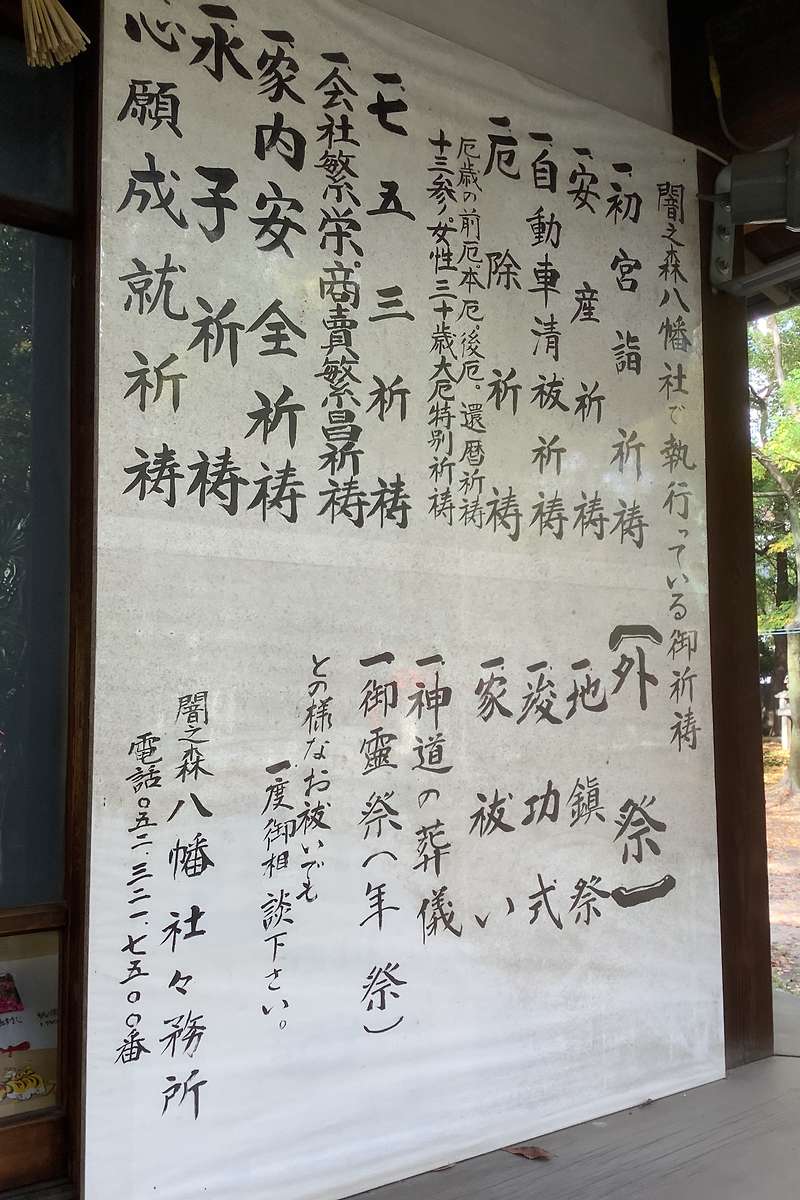 闇之森八幡社で執行っている御祈祷
一初宮詣祈祷
一安産祈祷
一自動車清祓祈祷
一厄除祈祷
厄歳の前厄。本厄。後厄。還暦祈祷
十三参り。女性三十歳大厄特別祈祷
一七五三祈祷
一会社繁栄。商賣繁昌祈祷
一家内安全祈祷
一求子祈祷
心願成就祈祷
(外祭)
一地鎮祭
一竣功式
一家祓い
一神道の葬儀
一御靈祭(年祭)
との様なお祓いでも
一度御相談下さい。
闇之森八幡社々務所
電話〇五二.三二一.七五〇〇番